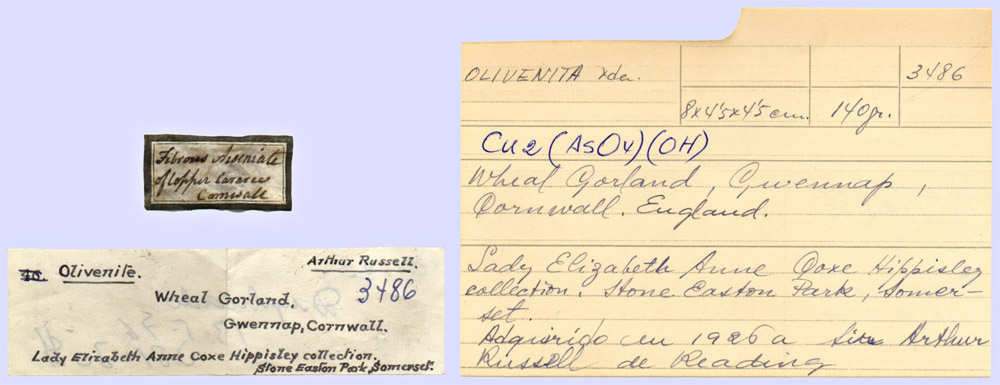 Fibrous Arseniate
of Copper
Cornwall
40. Olivenite.
Arthur Russell.
Wheal Gorland.
3486
Gwennap, Cornwall.
Lady Elizabeth Anne Coxe Hippisley collection.
Stone Easton Park, Somerset.
OLIVENITA xda.
3486
8x4'5x4'5 cm.
140gr.
Cu2 (AsO4)(OH)
Wheal Gorland, Gwennap,
Cornwall. England.
Lady Elizabeth Anne Coxe Hippisley
collection. Stone Easton Park, Somer-
set.
Adqisrido en 1926 a Sir Arthur
Russell de Reading